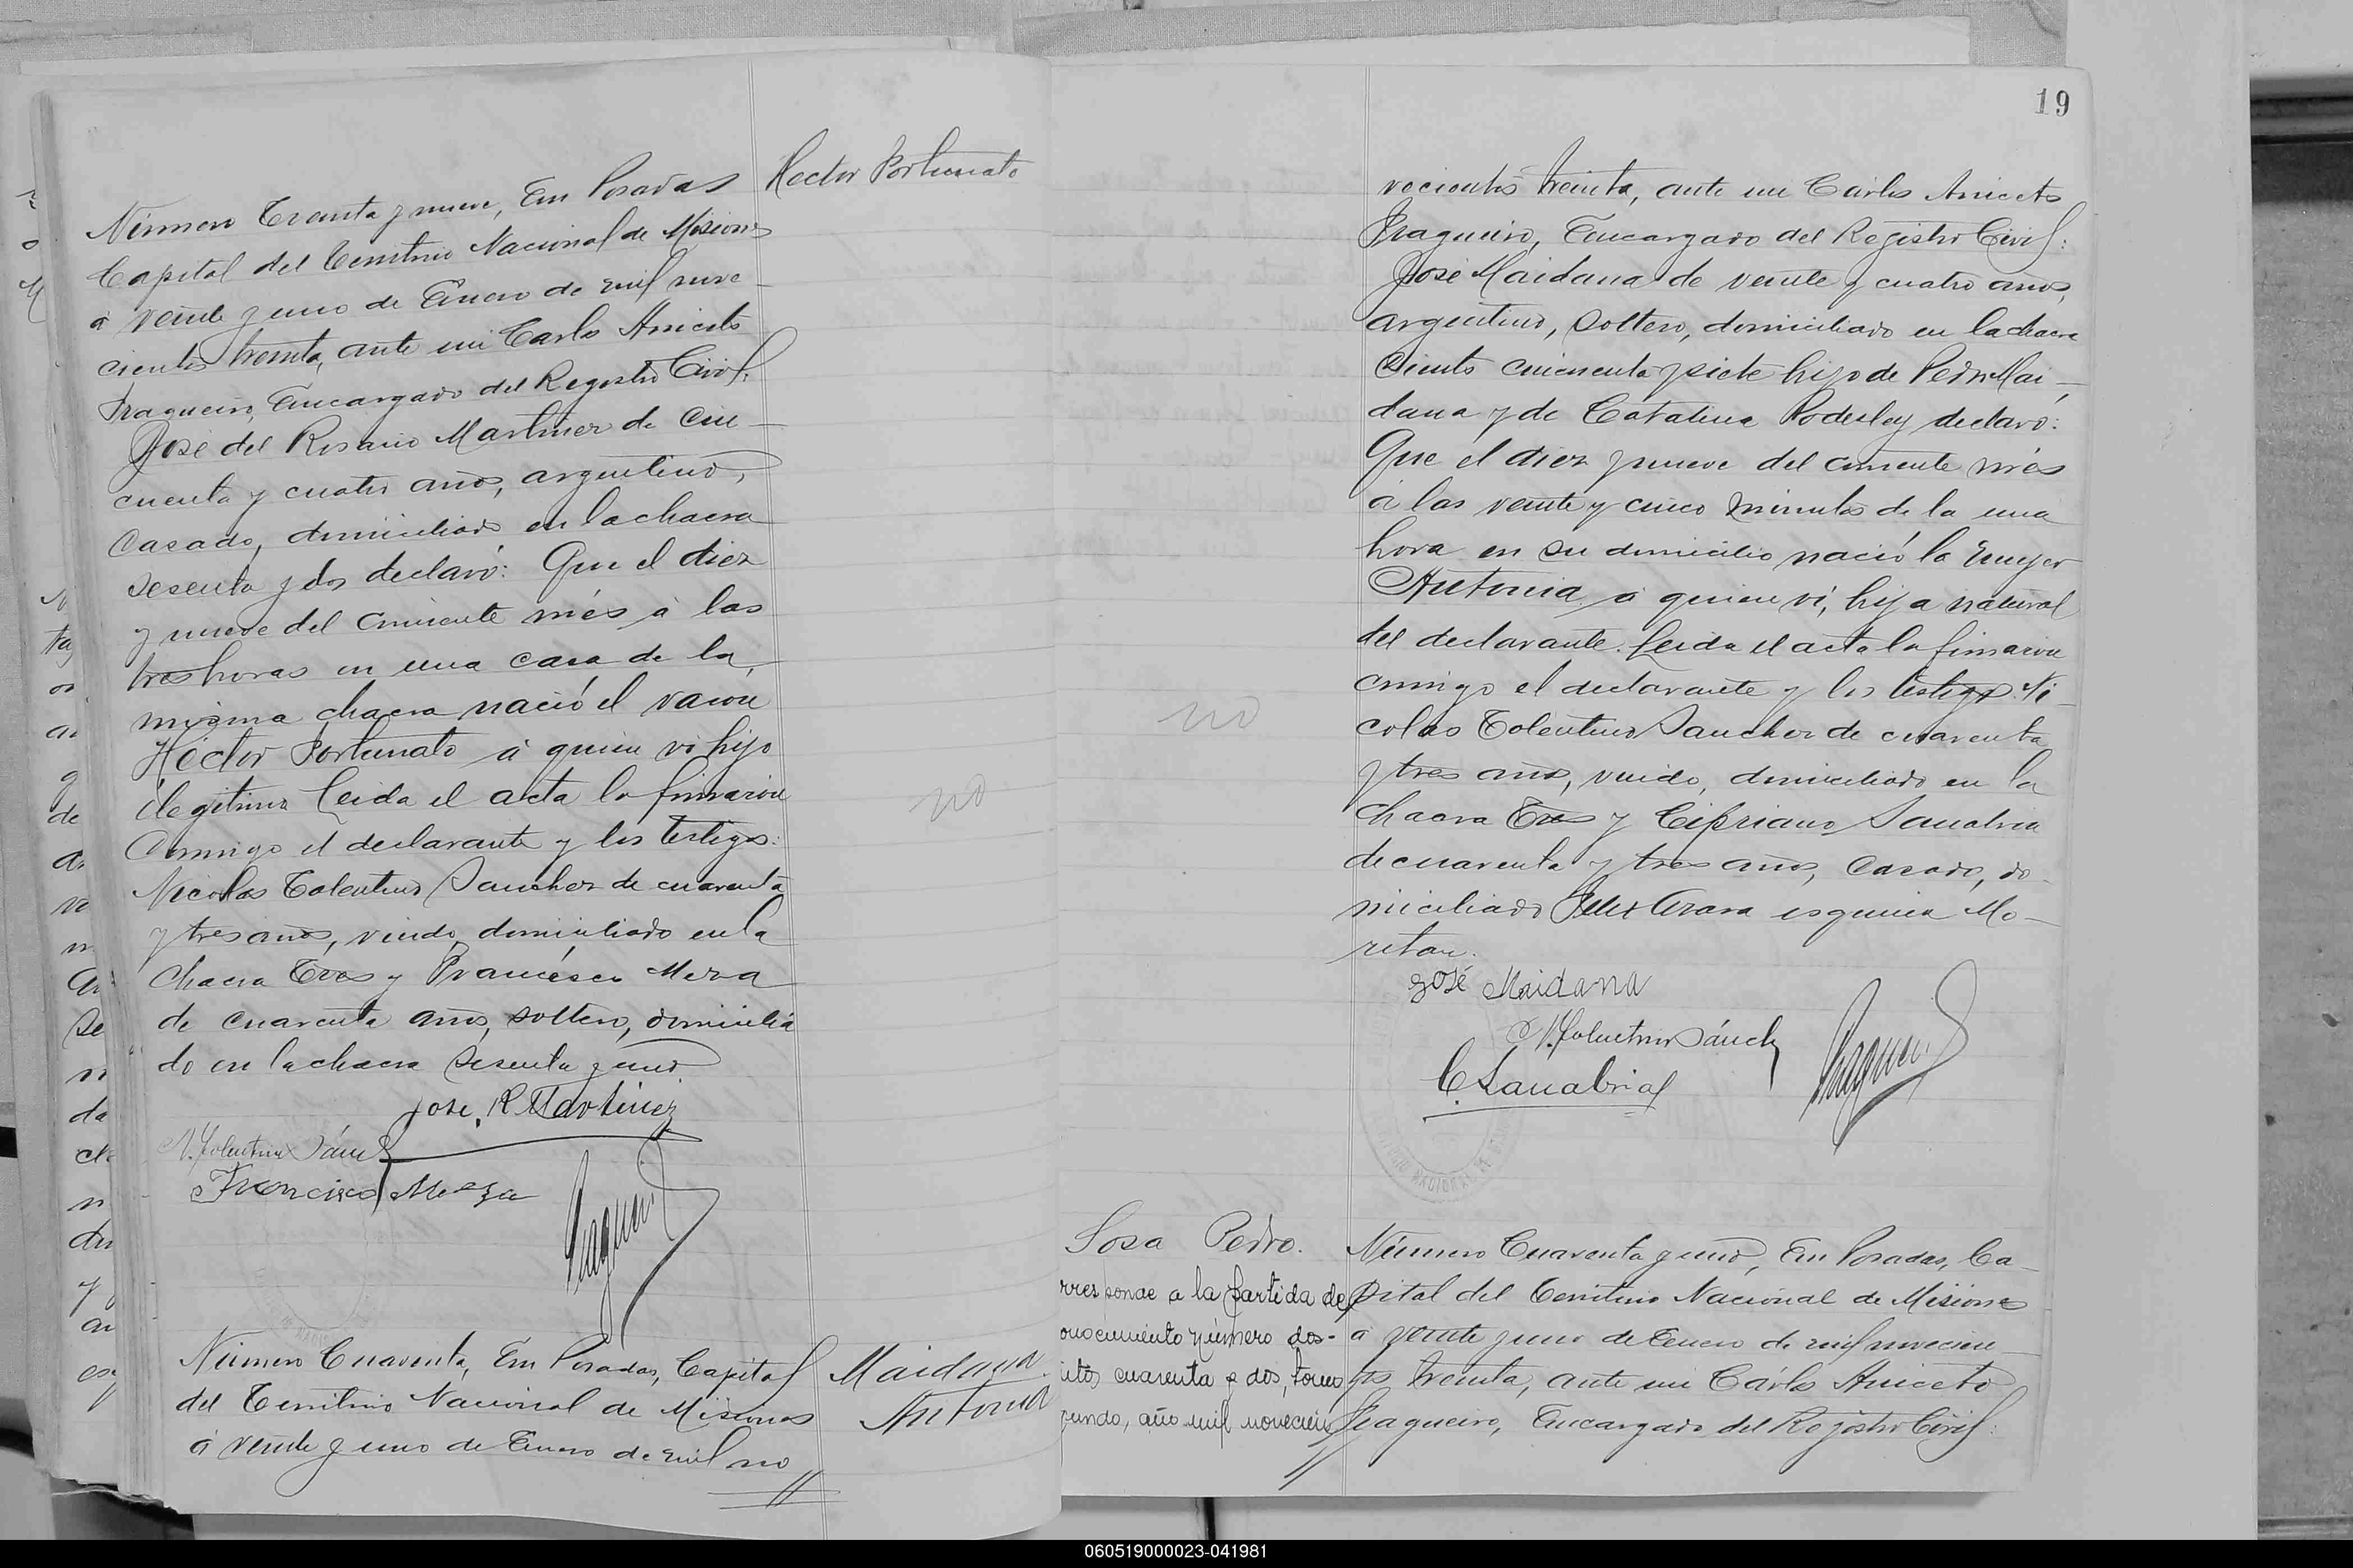 Hector Fortunato
Número Treinta y nueve, En Posadas
Capital del Territorio Nacional de Misiones
á veinte y uno de Enero de mil nove
cientos treinta, ante mi Carlos Aniceto
Fraqueiro, Encargado del Registro Civil:
José del Rosario Martinez de cin
cuenta y cuatro años, argentino,
casado, domiciliado en la chacra
sesenta y dos declaró: Que el diez
y nueve del corriente més á las
tres horas en una casa de la
misma chacra nació el varon
Héctor Fortunato á quien vi hijo
ilegitimo Leida el acta la firmaron
conmigo el declarante y los testigos:
Nicolas Tolentino Sanchez de cuarenta
y tres años, viudo, domiciliado en la
chacra Tres y Francisco Meza
de cuarenta años, soltero, domicilia
do en la chacra sesenta y uno
no
Jose, R Martinez
N. Tolentino Sánch
Francisco Meza
Fraqueiro
Número Cuarenta, En Posadas, Capital
del Territorio Nacional de Misiones
á veinte y uno de Enero de mil no
Maidana
Antonia
19
vecientos treinta, ante mi Carlos Aniceto
Fraqueiro, Encargado del Registro Civil:
José Maidana de veinte y cuatro años,
argentino, soltero, domiciliado en la chacra
Ciento cincuenta y siete hijo de Pedro Mai
dana y de Catalina declaró:
Que el diez y nueve del corriente més
á las veinte y cinco minutos de la una
hora en su domicilio nació la mujer
Antonia á quien vi, hija natural
del declarante. Leida el acta la firmaron
conmigo el declarante y los testigos: Ni
colas Tolentino Sanchez de cuarenta
y tres años, viudo, domiciliado en la
chacra Tres y Cipriano Sanabria
de cuarenta y tres años, casado, do
miciliado Felix Azara esquina Mo
ritan.
no
José Maidana
N. Tolentino Sánch
C. Sanabria
Fraqueiro
Sosa Pedro.
rresponde a la partida de
onocimiento número dos-
ntos cuarenta y dos, tomo
gundo, año mil novecien
Número Cuarenta y uno, En Posadas, Ca
pital del Territorio Nacional de Misiones
á veinte y uno de Enero de mil novecien
tos treinta, ante mi Carlos Aniceto
Fraqueiro, Encargado del Registro Civil:
060519000023-041981